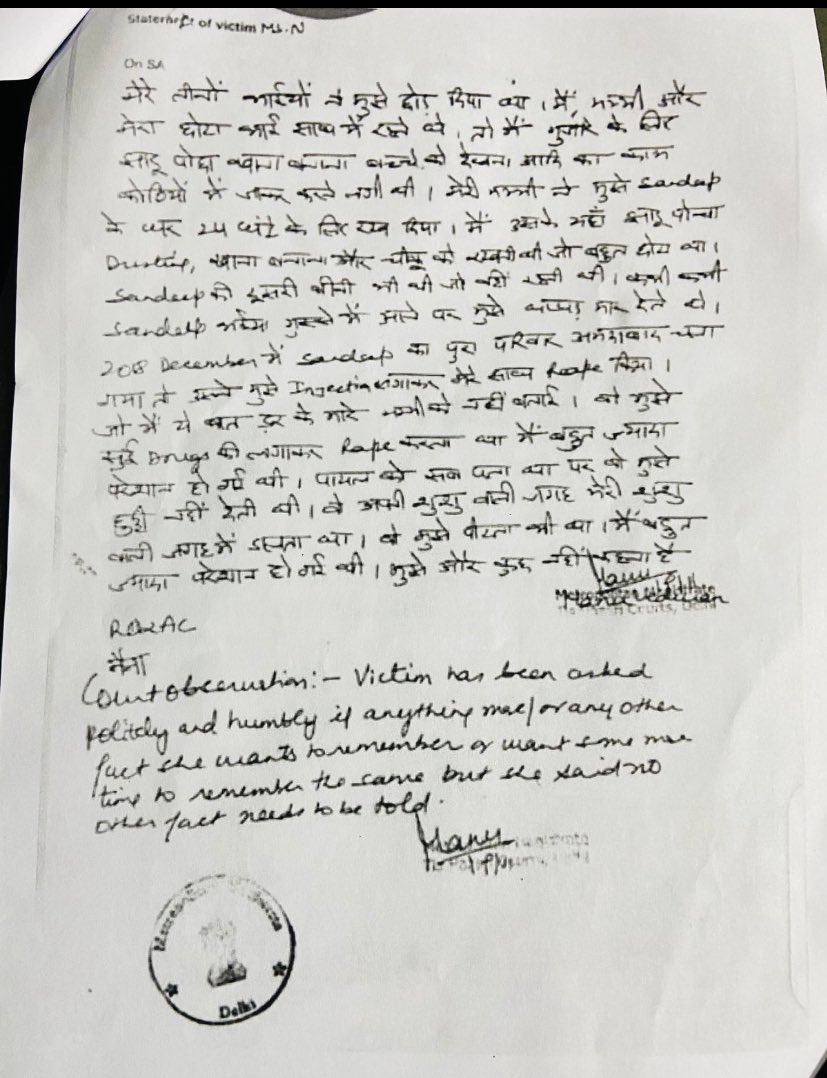 Statement of victim Ms. N
On SA
मेरे तीनों भाईयों ने मुझे छोड़ दिया था। मैं, मम्मी और
मेरा छोटा भाई साथ में रहते थे, तो मैं गुजारे के लिए
झाडू पोछा खाना बनाना बच्चे को देखना आदि का काम
कोठियों में जाकर करने लगी थी। मेरी मम्मी ने मुझे Sandeep
के घर 24 घंटे के लिए रख दिया। मैं उसके यहाँ झाडू पोन्चा
Dusting, खाना बनाना और को रखती थी जो बहुत छोटा था।
Sandeep की दूसरी बीवी भी थी जो वहीं रहती थी। कभी कभी
Sandeep भईया गुस्से में आने पर मुझे थप्पड़ मार देते थे।
2018 December में Sandeep का पुरा परिवार अहमदाबाद चला
गया तो उसने मुझे Injection लगाकर मेरे साथ Rape किया।
जो मैं ये बात डर के मारे मम्मी को नहीं बताई। वो मुझे
सुई Drugs की लगाकर Rape करता था मैं बहुत ज्यादा
परेशान हो गई थी। पायल को सब पता था पर वो मुझे
छुट्टी नहीं देती थी। वो अपनी शुशु वाली जगह मेरी शुशु
वाली जगह में डालता था। वो मुझे पीटता भी था। मैं बहुत
ज्यादा परेशान हो गई थी। मुझे और कुछ नहीं कहना है
RO&AC
नैना
Court observation:- Victim has been asked
politely and humbly if anything more/or any other
fact she wants to remember or want some more
time to remember the same but she said no
other fact needs to be told.
Delhi